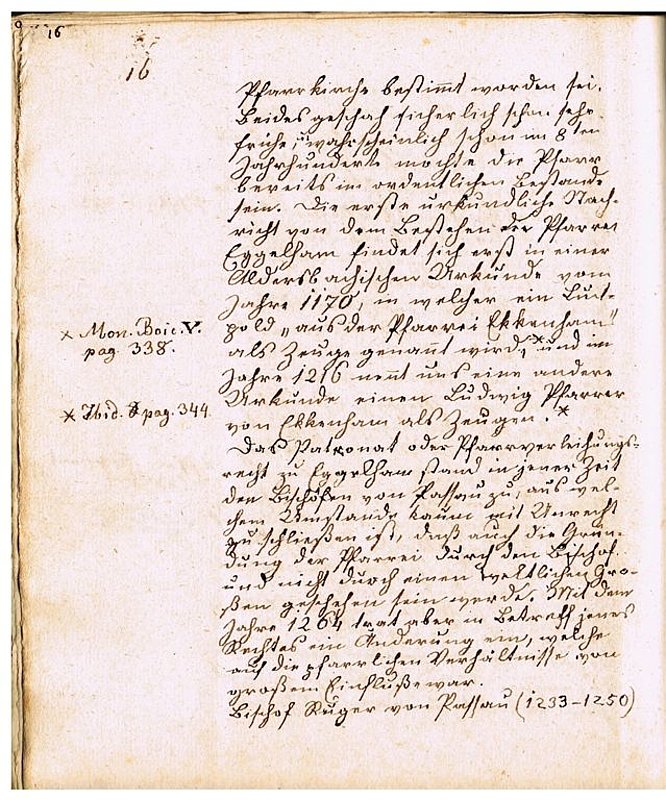 16
16
Pfarrkirche bestimmt worden sei.
Beides geschah sicherlich schon sehr
frühe; wahrscheinlich schon im 8ten
Jahrhunderte mochte die Pfarr
bereits im ordentlichen Bestande
sein. Die erste urkundliche Nach-
richt von dem Bestehen der Pfarrei
Eggelham findet sich erst in einer
Aldersbachischen Urkunde vom
Jahre 1170, in welcher ein Luit-
pold „aus der Pfarrei Ekkenham"
als Zeuge genannt wird,* und im
Jahre 1216 nennt uns eine andere
Urkunde einen Ludwig Pfarrer
von Ekkenham als Zeugen.*
× Mon. Boic. V.
pag. 338.
* Ibid. pag. 344.
Das Patronat oder Pfarrverleihungs-
recht zu Eggelham stand in jener Zeit
den Bischöfen von Passau zu, aus wel-
chem Umstande kaum mit Unrecht
zu schließen ist, daß auch die Grün-
dung der Pfarrei durch den Bischof
und nicht durch einen weltlichen Gro-
ßen geschehen sein werde. Mit dem
Jahre 1264 trat aber in Betreff jenes
Rechtes ein Änderung ein, welche
auf die pfarrlichen Verhältnisse von
großem Einfluße war.
Bischof Rüger von Passau (1233-1250)